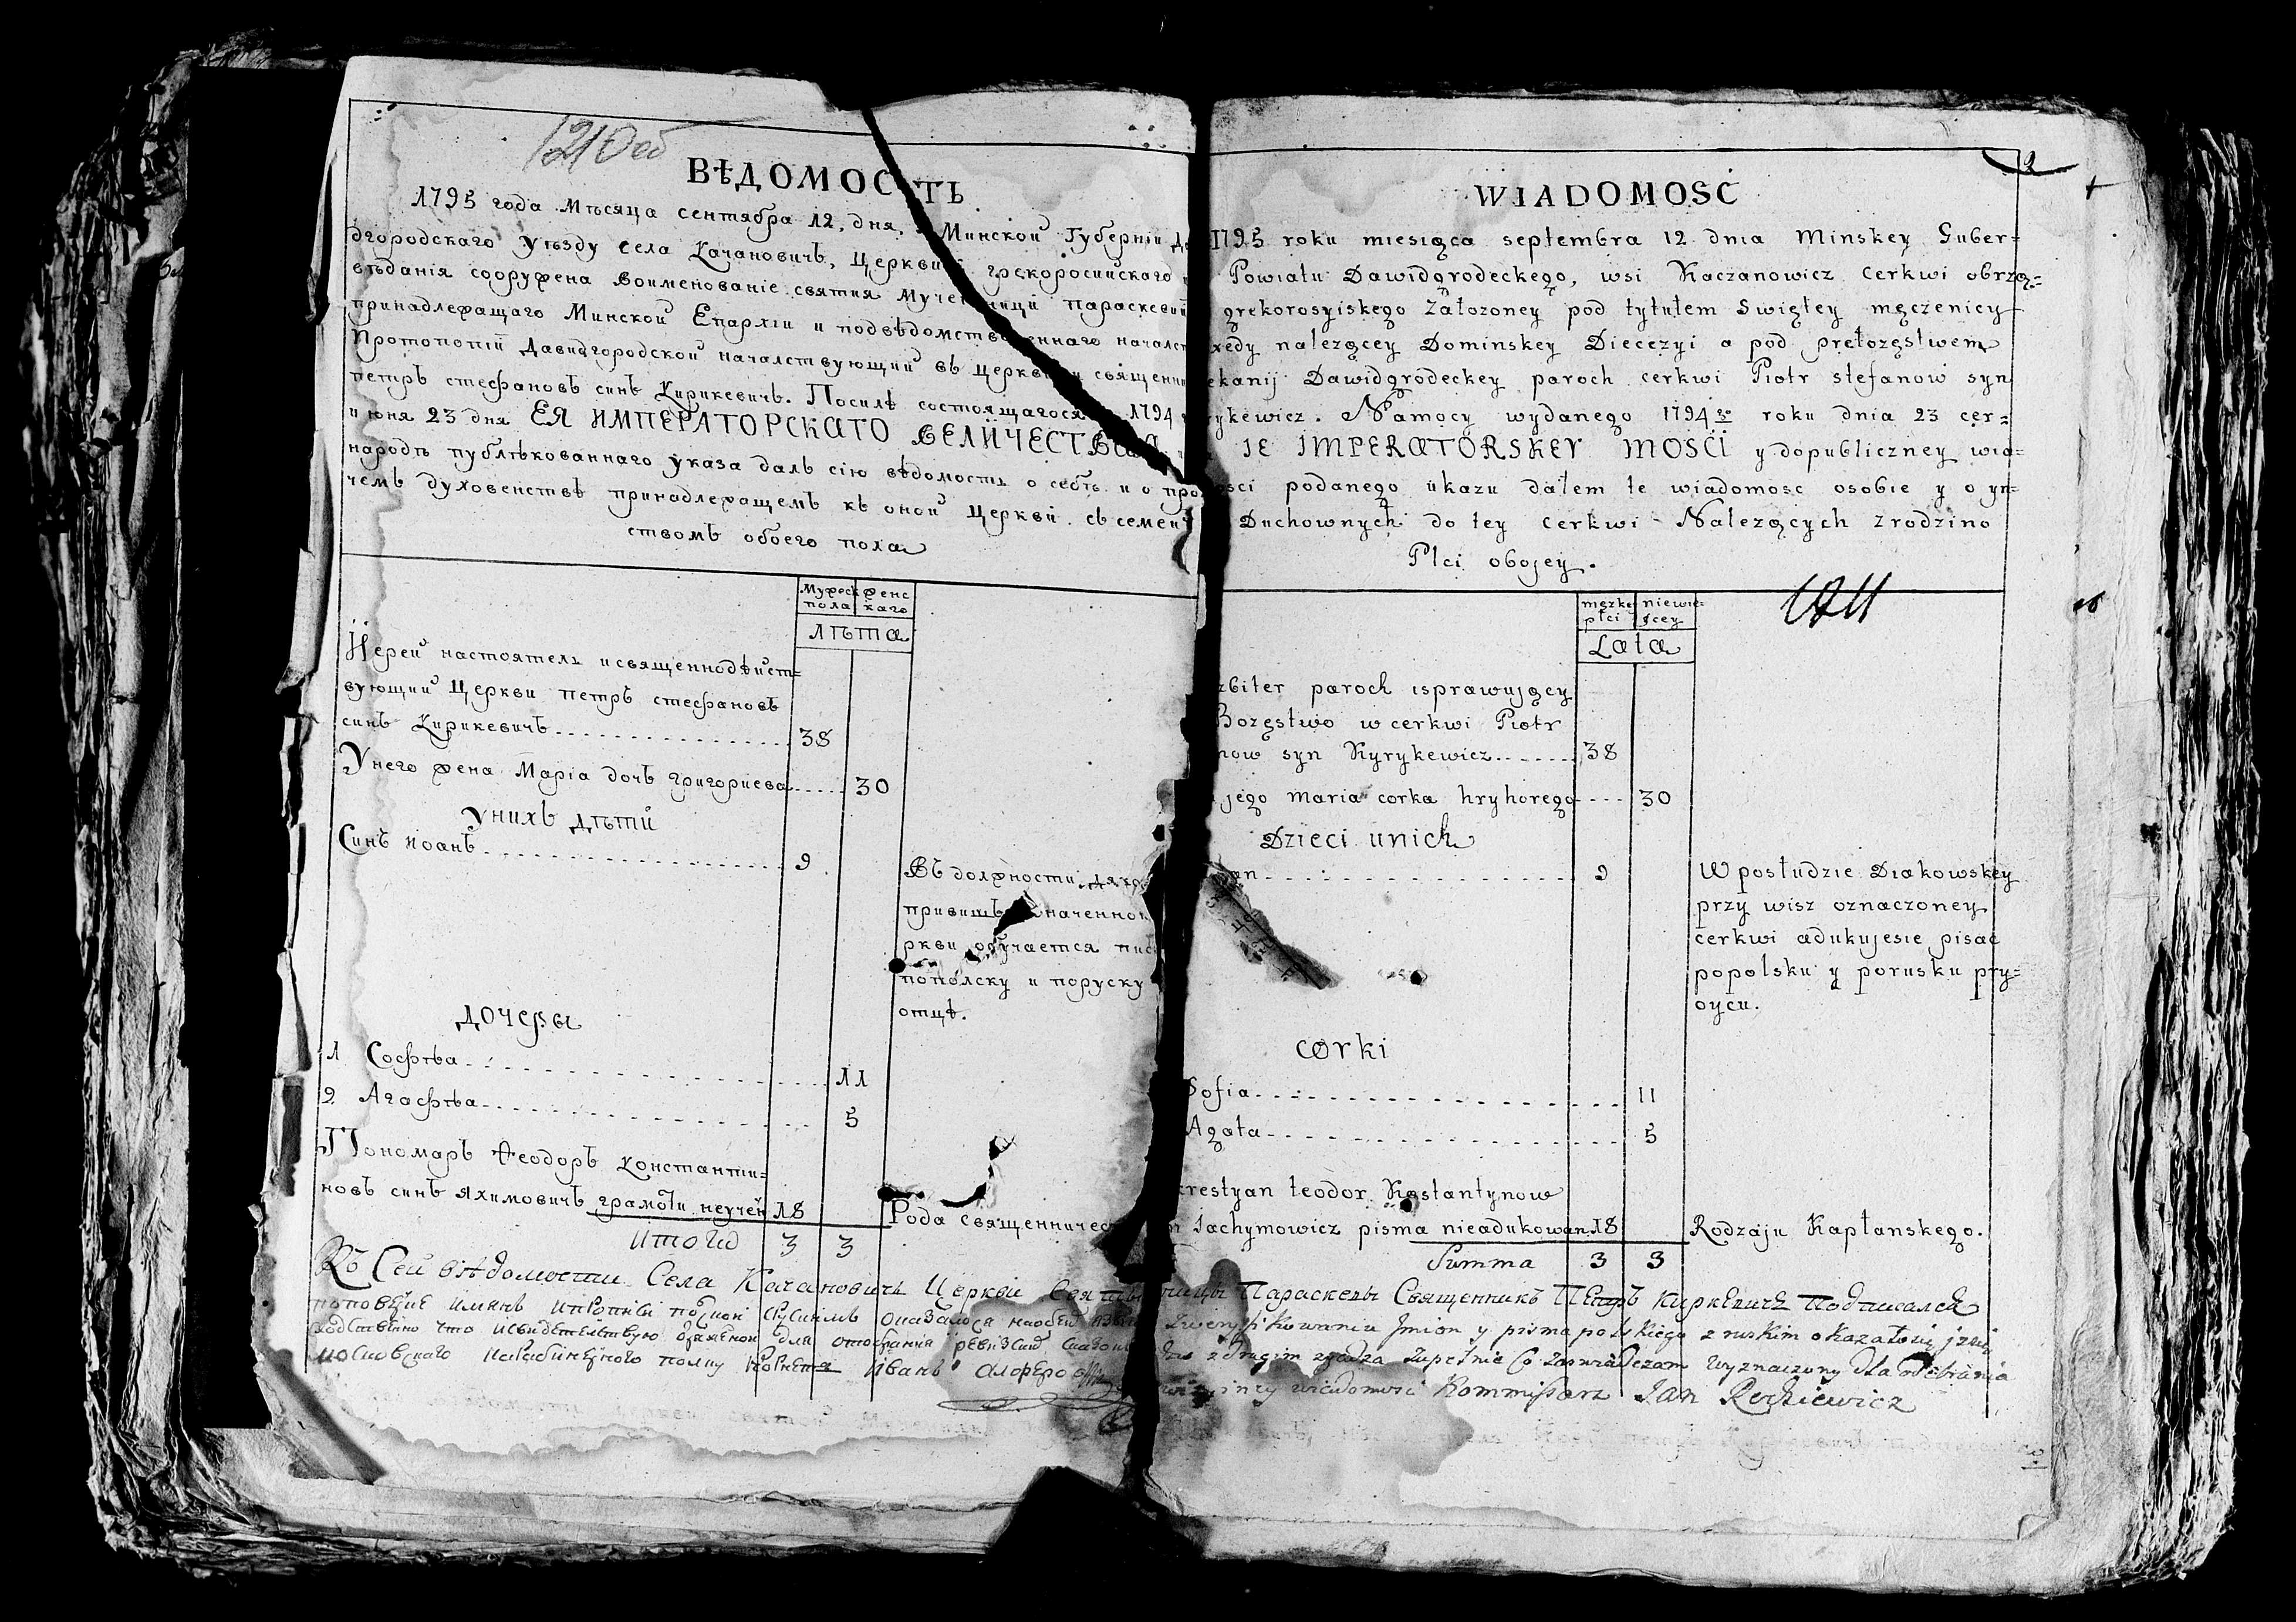 1210 об
ВѢДОМОСТЬ
1795 года Мѣсяца сентября 12, дня, Минской Губерніи
дгородскаго уѣзду села Качановичъ, Церкви грекоросийскаго
вѣданія сооружена воименованіе святия Мученници параскевии
принадлежащаго Минской Епархіи и подвѣдомственнаго началст
Протопопіи Давидгородской началствующий въ церкви священни
петръ стефановъ синъ Кирикевичъ. Посилѣ состоящагося 1794
июня 23 дня ЕЯ ИМПЕРАТОРСКАГО ВЕЛИЧЕСТВА
народъ публѣкованнаго указа далъ сію вѣдомость о себѣ и о про
чемъ духовенствѣ принадлежащемъ къ оной Церкви съ семей
ствомъ обоего пола
Мужеск женс
пола каго
лѣта
Иерей настоятель исвященнодѣйст=
вующий Церкви петръ стефановъ
синъ Кирикевичъ 38
Унего жена Маріа дочъ григориева 30
Унихъ дѣти
Синъ иоанъ 9
Въ должности
наченной
ркви обучается пис
пополску и поруску
отцѣ.
дочеры
1 Софѣа 11
2 Агафѣа 5
Пономаръ Феодоръ Константи=
новъ синъ яхимовичъ грамоти неучен 18 Рода священничес
итого 3 3
2
WIADOMOSĆ
1795 roku miesiąca septembra 12 dnia Minskey Guber=
Powiatu Dawidgrodeckego, wsi Kaczanowicz cerkwi obrzą=
grekorosyiskego załozoney pod tytułem Swiętey męczenicy
xedy nalezącey Dominskey Diecezyi a pod prełozęstwem
ekanij Dawidgrodeckey paroch cerkwi Piotr stefanow syn
rykewicz. Namocy wydanego 1794 go roku dnia 23 cer=
JE IMPERATORSKEY MOSCI y dopubliczney wia=
osci podanego ukazu dałem te wiadomosc osobie y o yn=
Duchownych do tey cerkwi Nalezących zrodzino
Płci obojey.
męzke niewie=
płci scey
Lata
zbiter paroch isprawujący
Bozęstwo w cerkwi Piotr
now syn Kyrykewicz 38
jego maria corka hryhorego 30
Dzieci unich
an 9
W posłudzie Diakowskey
przy wisz oznaczoney
cerkwi adukujesie pisać
popolsku y porusku pry=
oycu.
corki
Sofia 11
Agata 5
krestyan teodor Kostantynow
Jachymowicz pisma nieadukowan 18 Rodzaju Kapłanskego.
Summa 3 3
Къ Сей вѣдомости Села Качановичъ Церкви Святы ницы Параскевы Священникъ Петръ Киркевичъ Подписался
Иванъ Алфероѳ
zweryfikowaniu Imion y pisma polskiego z ruskim okazałosię
z drugim zgadza zupełnie Co zaswiadczam Wyznaczony dla odebrania
wiadomosci Kommissarz Jan